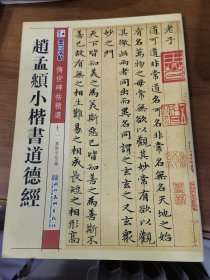 老子
道可道非常道名可名非常名無名天地之始
有名萬物之母常無欲以觀其妙常有欲以觀其徼
此兩者同出而異名同謂之玄玄之又玄眾
妙之門
天下皆知美之為美斯惡已皆知善之為善斯不善
已故有無之相生難易之相成長短之相形高
傳世碑帖精選
十二
趙孟頫小楷書道德經